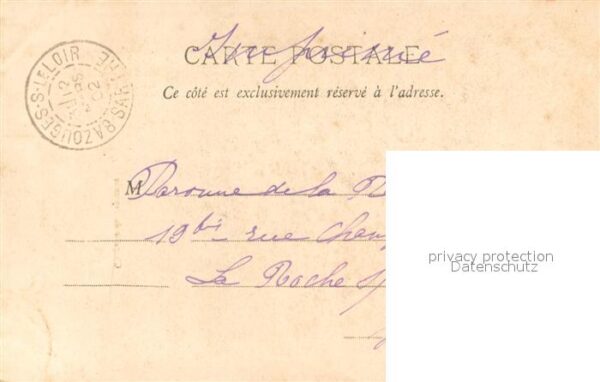 Imprimé
CARTE POSTALE
Ce côté est exclusivement réservé à l'adresse.
BAZOUGES-S-LE LOIR SARTHE
12
02
M
de la
19 bis rue
La Roche
privacy protection
Datenschutz